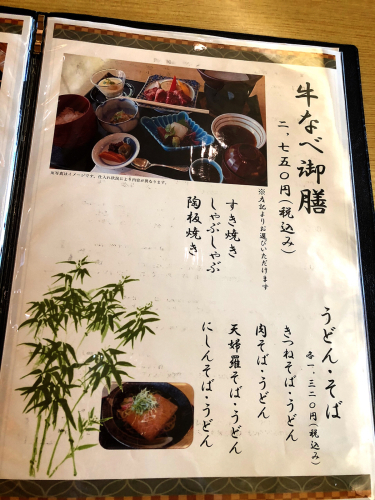 牛なべ御膳
二、七五〇円(税込み)
※左記よりお選びいただけます
すき焼き
しゃぶしゃぶ
陶板焼き
※写真はイメージです。仕入れ状況により内容が異なります。
うどん・そば
各一、三二〇円(税込み)
きつねそば・うどん
肉そば・うどん
天婦羅そば・うどん
にしんそば・うどん